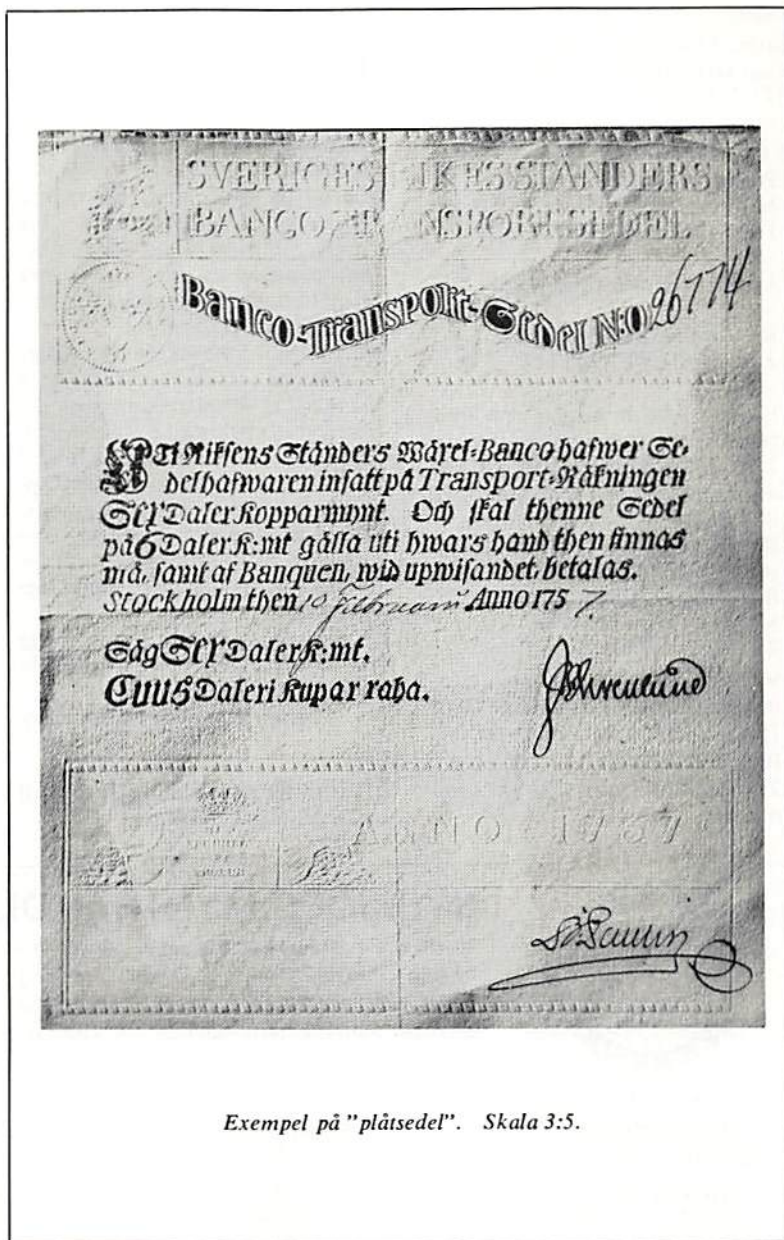 SVERIGES RIKES STÄNDERS
BANCO TRANSPORT SEDEL
Banco-Transport-Sedel N:o 26774
UTi Riksens Ständers Wäxel-Banco hafwer Se-
delhafwaren insatt på Transport-Räkningen
Sex Daler Kopparmynt. Och skal thenne Sedel
på 6 Daler K:mt gälla uti hwars hand then finnas
må, samt af Banquen, wid upwisandet, betalas.
Stockholm then 10 Februarii Anno 1757.
Säg Sex Daler K:mt.
CUUS Daleri Kupar raha.
ANNO 1757
Exempel på "plåtsedel". Skala 3:5.